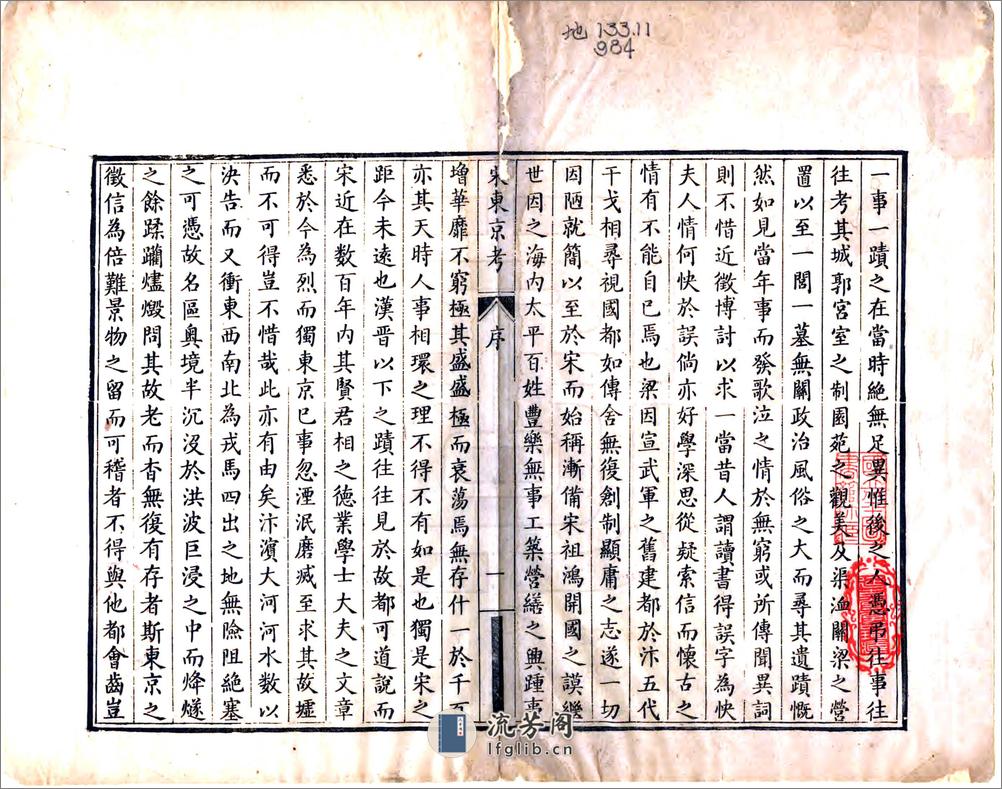 地 133.11
984
一事一蹟之在當時絶無足異惟後之人憑弔往事往
往考其城郭宮室之制園苑之觀美及渠洫關梁之營
置以至一閭一墓無關政治風俗之大而尋其遺蹟慨
然如見當年事而發歌泣之情於無窮或所傳聞異詞
則不惜近徵博討以求一當昔人謂讀書得誤字為快
夫人情何快於誤倘亦好學深思從疑索信而懷古之
情有不能自已焉也梁因宣武軍之舊建都於汴五代
干戈相尋視國都如傳舍無復創制顯庸之志遂一切
因陋就簡以至於宋而始稱漸備宋祖鴻開國之謨繼
世因之海内太平百姓豐樂無事工築營繕之興踵事
宋東京考 序 一
增華靡不窮極其盛盛極而衰蕩焉無存什一於千百
亦其天時人事相環之理不得不有如是也獨是宋之
距今未遠也漢晉以下之蹟往往見於故都可道說而
宋近在數百年内其賢君相之德業學士大夫之文章
悉於今為烈而獨東京已事忽湮泯磨滅至求其故墟
而不可得豈不惜哉此亦有由矣汴濱大河河水數以
決告而又衝東西南北為戎馬四出之地無險阻絶塞
之可憑故名區奥境半沉沒於洪波巨浸之中而烽燧
之餘蹂躪燼燬問其故老而杳無復有存者斯東京之
徵信為倍難景物之留而可稽者不得與他都會齒豈
流芳阁
lfglib.cn